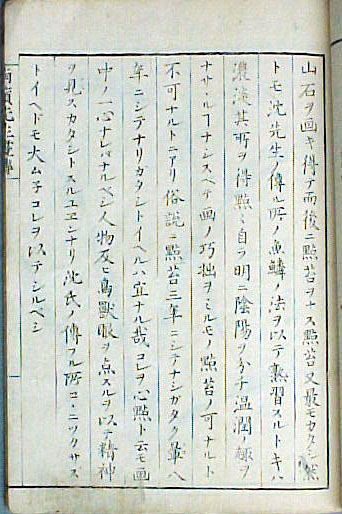 山石ヲ画キ得テ而後ニ點苔ヲナス點苔又最モカタシ然
トモ沈先生ノ傳ル所ノ魚鱗ノ法ヲ以テ熟習スルトキハ
濃淡其所ヲ得點々自ラ明ニ陰陽ヲワチ温潤ノ趣ヲ
ナサヽルヿナシスベテ画ノ巧拙ヲミルモノ點苔ノ可ナルト
不可ナルトニアリ俗説ニ點苔三年ニシテナシガタク皴八
年ニシテナリカタシトイヘルハ宜ナル哉コレヲ心點ト云モ画
中ノ一心ナレバナルベシ人物及ヒ鳥獣眼ヲ点スルヲ以テ精神
ヲ見スカタシトスルユヱンナリ沈氏ノ傳フル所コヽニツクサズ
トイヘドモ大ム子コレヲ以テシルベシ